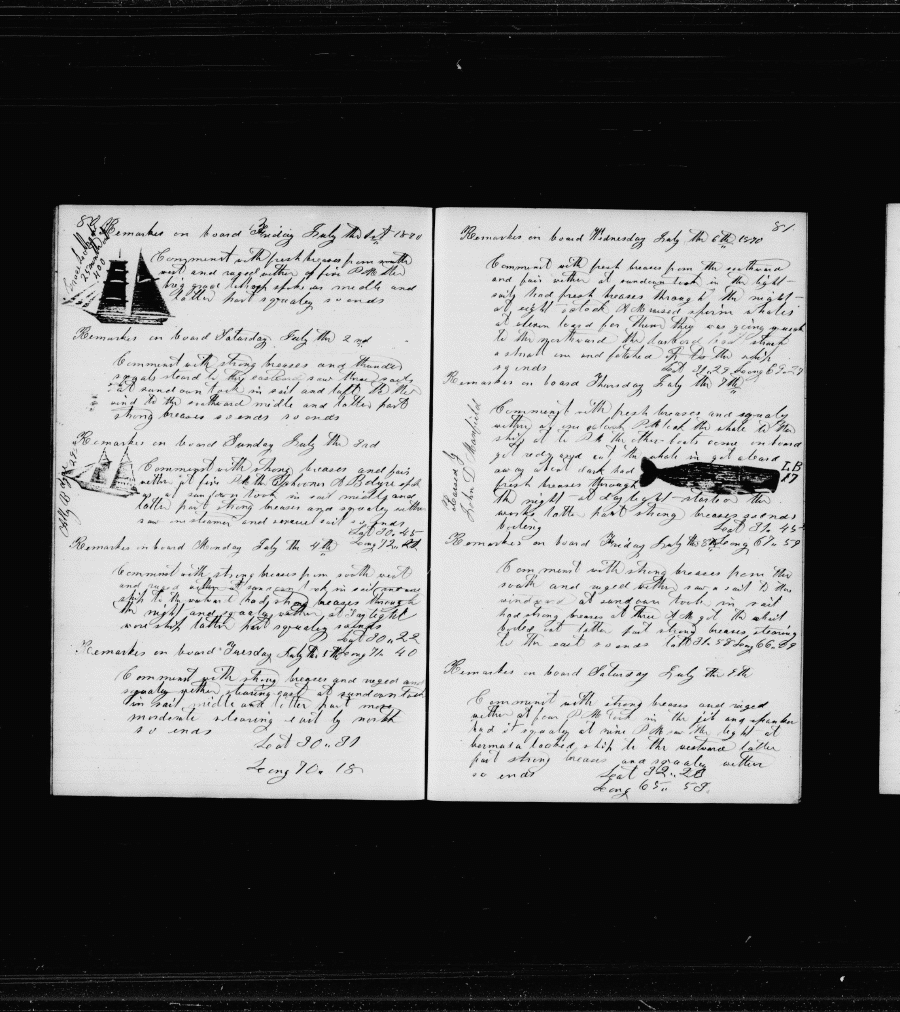 80
Remarkes on board Friday July the 1st 1870
Comments with fresh breases from south
west and raged wether at five P M the
brig spoke us middle and
latter part squaley so ends
Remarkes on board Saturday July the 2nd
Comments with strong breases and thunder
squals steard to the eastward saw three sails
at sundown took in sail and luft to the
wind to the southward midle and latter part
strong breases so ends so ends
Remarkes on board Sunday July the 3rd
Comments with strong breases and fair
wether at five P M the
at sundown took in sail midle and
latter part strong breases and squaley wether
saw in steamer and sail so ends
Lat 30 " 45
Long 72 "
Remarkes on board Monday July the 4th
Comments with strong breases from south west
and raged wether at sundown took in sail
ship to the westward had strong breases through
the night and squaley wether at day light
wore ship latter part squaley so ends
Lat 30 " 22
Long 71 " 40
Remarkes on board Tuesday July the 5th
Comments with strong breases and raged and
squaley wether stearing east at sundown took
in sail midle and latter part more
moderate stearing east by north
so ends
Lat 30 " 31
Long 70 " 18
81
Remarkes on board Wednesday July the 6th 1870
Comments with fresh breases from the southward
and fair wether at sundown took in the light
sails had fresh breases through the night
at eight oclock A M raised sperm whales
at eleven loard for them they was going quick
to the northward the larbord boat struck
a small one and fetched to the ship
so ends Lat 31 " 29 Long 69 " 27
Remarkes on board Thursday July the 7th
Comments with fresh breases and squaley
wether at one oclock P M took the whale to the
ship at 2 P M the other boats come on board
got redy and cut the whale in got cleard
away about dark had
fresh breases through
the night at day light started the
works latter part strong breases so ends
boiling Lat 31 " 45
Long 67 " 59
Remarkes on board Friday July the 8th
Comments with strong breases from the
south and raged wether saw a sail to the
windward at sundown took in sail
had strong breases at three A M got the whale
boiled out latter part strong breases stearing
to the east so ends Latt 31 " 58 Long 66 " 39
Remarkes on board Saturday July the 9th
Comments with strong breases and raged
wether at four P M took in the jib and spanker
had it squaley at nine P M saw the light at
bermuda tacked ship to the westward latter
part strong breases and squaley wether
so ends Lat 32 " 28
Long 65 " 58
John D Manfield
L B